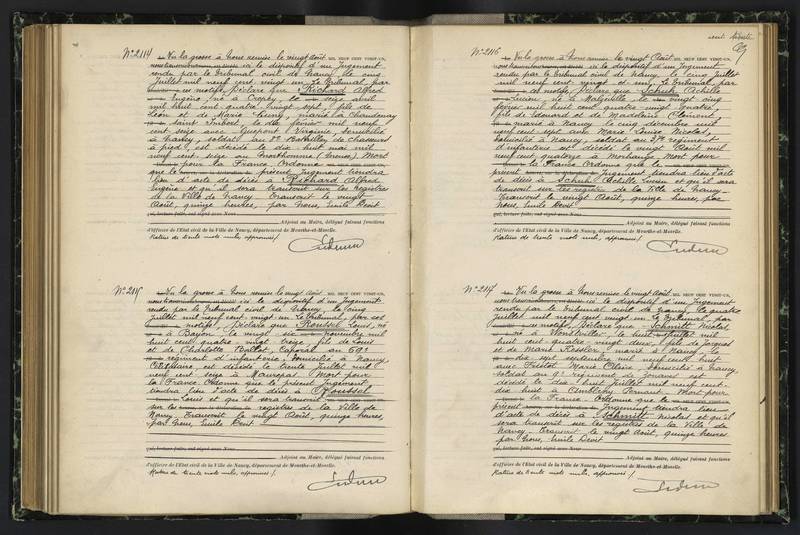 N° 2114 Vu la grosse à Nous remise le vingt Août MIL NEUF CENT VINGT-UN,
ici le dispositif d'un Jugement
rendu par le Tribunal civil de Nancy, le cinq
Juillet mil neuf cent vingt un Le Tribunal, par
ces motifs, Déclare que Richard Alfred
Eugène, né à Crépey, le seize avril
mil huit cent quatre-vingt sept, fils de
Léon et de Marie Henry, marié à Chaudenay
le février mil neuf
cent seize avec Virginie, domicilié
à Nancy, soldat au Bataillon de Chasseurs
à pied, est décédé le dix huit mai mil
neuf cent seize au Morthomme (Meuse) Mort
pour la France Ordonne
que le présent Jugement tiendra
lieu d'acte de décès à Richard Alfred
Eugène et qu'il sera transcrit sur les Registres
de la Ville de Nancy. Transcrit le vingt
Août, quinze heures, par Nous, Emile Devit
qui, lecture faite, ont signé avec Nous
Adjoint au Maire, délégué faisant fonctions
d'officier de l'Etat civil de la Ville de Nancy, département de Meurthe-et-Moselle.
Rature de trente mots nuls, approuvée /.
N° 2115 Vu la grosse à Nous remise le vingt Août MIL NEUF CENT VINGT-UN,
ici le dispositif d'un Jugement
rendu par le Tribunal civil de Nancy, le cinq
Juillet mil neuf cent vingt un Le Tribunal, par ces
motifs, Déclare que Roussel Louis, né
à Bayon le vingt-six novembre mil
huit cent quatre-vingt treize, fils de Louis
et de Charlotte Ballot, Caporal au 69e
régiment d'infanterie, domicilié à Nancy
Célibataire, est décédé le trente Juillet mil
neuf cent seize à Maurepas Mort pour
la France Ordonne que le présent Jugement
tiendra lieu d'acte de décès à Roussel
Louis et qu'il sera transcrit
sur les registres de la Ville de
Nancy. Transcrit le vingt Août, quinze heures,
par Nous, Emile Devit
qui, lecture faite, ont signé avec Nous
Adjoint au Maire, délégué faisant fonctions
d'officier de l'Etat civil de la Ville de Nancy, département de Meurthe-et-Moselle.
Rature de trente mots nuls, approuvée /.
N° 2116 Vu la grosse à Nous remise le vingt Août MIL NEUF CENT VINGT-UN,
ici le dispositif d'un Jugement
rendu par le Tribunal civil de Nancy, le cinq Juillet
mil neuf cent vingt et un, Le Tribunal, par
ces motifs, Déclare que Schuh Achille
Lucien, né à Maxéville le vingt cinq
février mil huit cent quatre vingt quatre
fils de Edouard et de Madeleine Clément
marié à Nancy le cinq décembre mil
neuf cent sept avec Marie Louise Nicolas,
domicilié à Nancy, soldat au régiment
d'infanterie est décédé le vingt Août mil
neuf cent quatorze à Morhange Mort pour
la France Ordonne que le
présent Jugement tiendra lieu d'acte
de décès à Schuh Achille Lucien et qu'il sera
transcrit sur les registres de la Ville de Nancy.
Transcrit le vingt Août, quinze heures, par
Nous, Emile Devit
qui, lecture faite, ont signé avec Nous
Adjoint au Maire, délégué faisant fonctions
d'officier de l'Etat civil de la Ville de Nancy, département de Meurthe-et-Moselle.
Rature de trente mots nuls, approuvée /.
N° 2117 Vu la grosse à Nous remise le vingt Août MIL NEUF CENT VINGT-UN,
ici le dispositif d'un Jugement
rendu par le Tribunal civil de Nancy, le quatre
Juillet mil neuf cent vingt un Le Tribunal, par
ces motifs, Déclare que Schmitt Nicolas,
né à le Juillet mil
huit cent quatre-vingt deux, fils de Jacques
et de Marie Kessler, marié à Nancy le
dix sept mil neuf cent huit
avec Marie Claire, domicilié à Nancy,
soldat au régiment de zouaves est
décédé le dix huit Juillet mil neuf cent
dix huit à Mort pour
la France Ordonne que le
présent Jugement tiendra lieu
d'acte de décès à Schmitt Nicolas et qu'il
sera transcrit sur les registres de la Ville de
Nancy. Transcrit le vingt Août, quinze heures
par Nous, Emile Devit
qui, lecture faite, ont signé avec Nous
Adjoint au Maire, délégué faisant fonctions
d'officier de l'Etat civil de la Ville de Nancy, département de Meurthe-et-Moselle.
Rature de trente mots nuls, approuvée /.